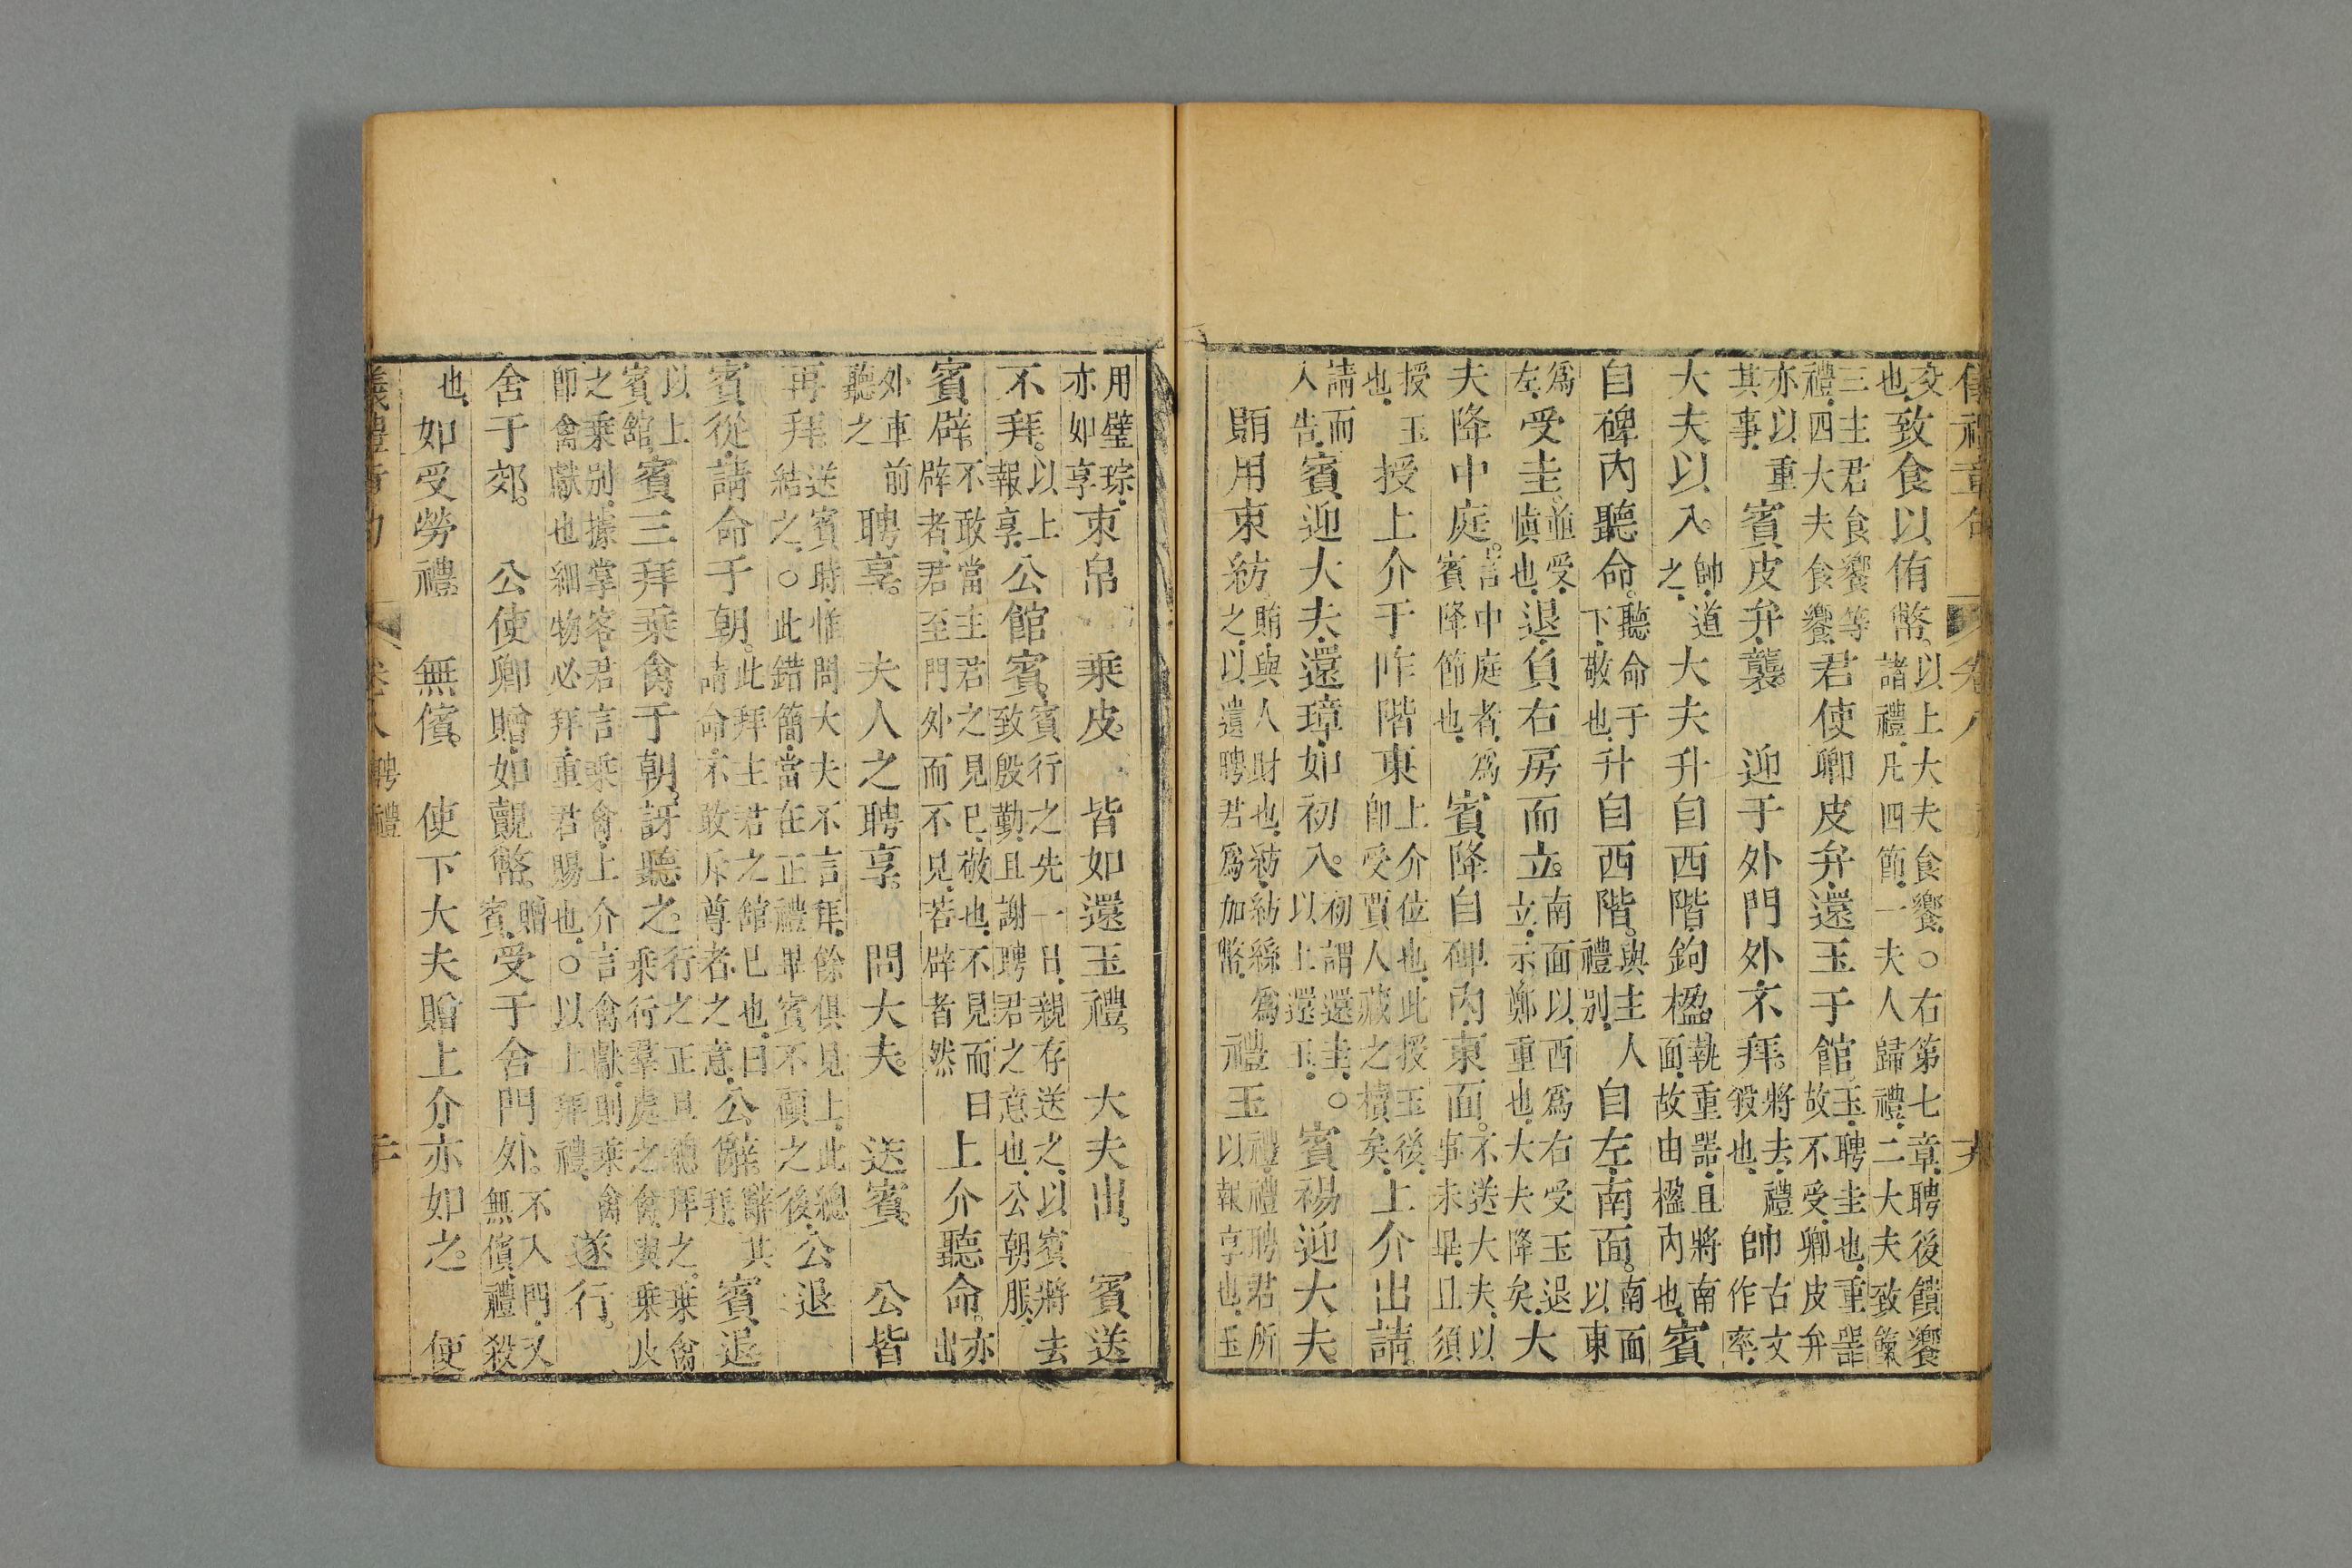 儀禮章句 卷八
也致食以侑幣。以上大夫食饗。○右第七章聘後饋饗諸禮凡四節一夫人歸禮二大夫致餼
三主君食饗等禮四大夫食饗君使卿皮弁還玉于館玉聘圭也重器故不受卿皮弁
亦以重其事賓皮弁襲。 迎于外門外不拜。將去禮殺也帥古文作率
大夫以入。帥道之大夫升自西階鉤楹執重器且將南面故由楹內也賓
自碑內聽命。聽命于下敬也升自西階。與主人禮別自左南面。南面以東
爲左受圭。並受慎也退負右房而立。南面以西爲右受玉退立示鄭重也大夫降矣大
夫降中庭。言中庭者爲賓降節也賓降自碑內東面。不送大夫以事未畢且須
授玉也授上介于阼階東上介位也此授玉後即受賈人藏之櫝矣上介出請
請而入告賓迎大夫還璋如初入。初謂還圭。○以上還玉賓裼迎大夫。
賄用束紡賄與人財也紡紡絲爲之以遺聘君爲加幣禮玉禮禮聘君所以報享也玉
用璧琮亦如享束帛 乘皮。 皆如還玉禮。 大夫出。 賓送
不拜。以上報享公館賓。賓行之先一日親存送之以賓將去致殷勤且謝聘君之意也公朝服
賓辟。不敢當主君之見已敬也不見而曰辟者君至門外而不見若辟者然上介聽命。亦出
外車前聽之聘享。 夫人之聘享。 問大夫。 送賓。 公皆
再拜送賓時惟問大夫不言拜餘俱見上此總結之○此錯簡當在正禮畢賓不顧之後公退
賓從請命于朝。此拜主君之館已也曰請命不敢斥尊者之意公辭辭其拜賓退
以上賓館賓三拜乘禽于朝訝聽之行之正且總拜之乘禽乘行羣處之禽與乘
之乘別據掌客君言乘禽上介言禽獻則乘禽即禽獻也細物必拜重君賜也○以上拜禮遂行。
舍于郊。 公使卿贈如覿幣。贈賓受于舍門外。不入門又無儐禮殺
也如受勞禮。 無儐。 使下大夫贈上介亦如之。 使
儀禮章句 卷八 聘禮